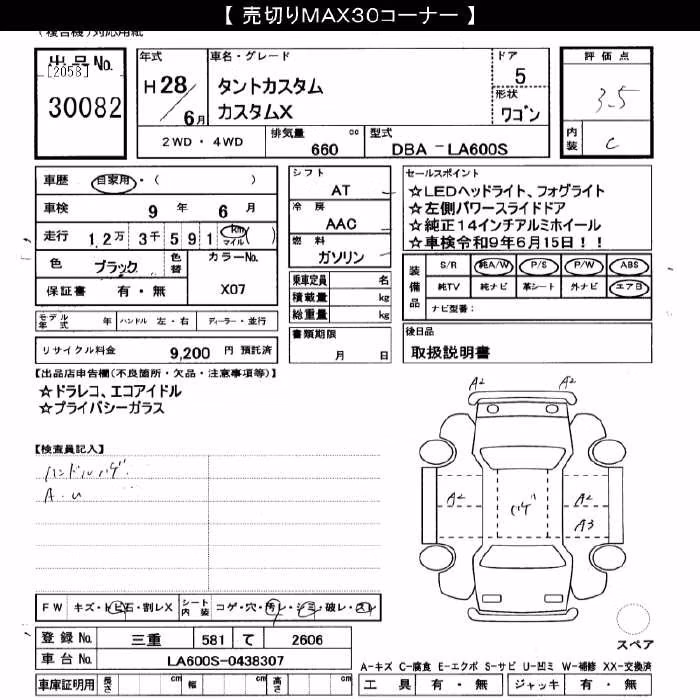 【 売切りMAX30コーナー 】
(複合機)対応用紙
出品No.
[2058]
30082
年式
H28/6月
車名・グレード
タントカスタム
カスタムX
ドア
5
形状
ワゴン
評価点
3.5
内装 C
2WD ・ 4WD
排気量 660 cc
型式 DBA -LA600S
車歴 自家用・( )
車検 9 年 6 月
走行 1,2万 3千 5 9 1 km マイル ( )
色 ブラック 色替
カラーNo. X07
保証書 有・無
シフト
AT
冷房
AAC
燃料
ガソリン
乗車定員 名
積載量 kg
総重量 kg
セールスポイント
☆LEDヘッドライト、フォグライト
☆左側パワースライドドア
☆純正14インチアルミホイール
☆車検令和9年6月15日!!
装備品
S/R 純A/W P/S P/W ABS
純TV 純ナビ 革シート 外ナビ エアB
ナビ型番:
モデル年式 年 ハンドル 左・右 ディーラー・並行
書類期限
月 日
後日品
取扱説明書
リサイクル料金 9,200 円 預託済
【出品店申告欄(不良箇所・欠品・注意事項等)】
☆ドラレコ、エコアイドル
☆プライバシーガラス
【検査員記入】
ハンドルハゲ
A.U
A2 A2
A2 ハゲ A2
A3
スペア
FW キズ・トビ石・割レX シート内装 コゲ・穴・汚レ・シミ・破レ・スレ
登録No. 三重 581 て 2606
車台No. LA600S-0438307
車庫証明用 長さ cm 幅 cm 高さ cm
A-キズ C-腐食 E-エクボ S-サビ U-凹ミ W-補修 XX-交換済
工具 有・無 ジャッキ 有・無